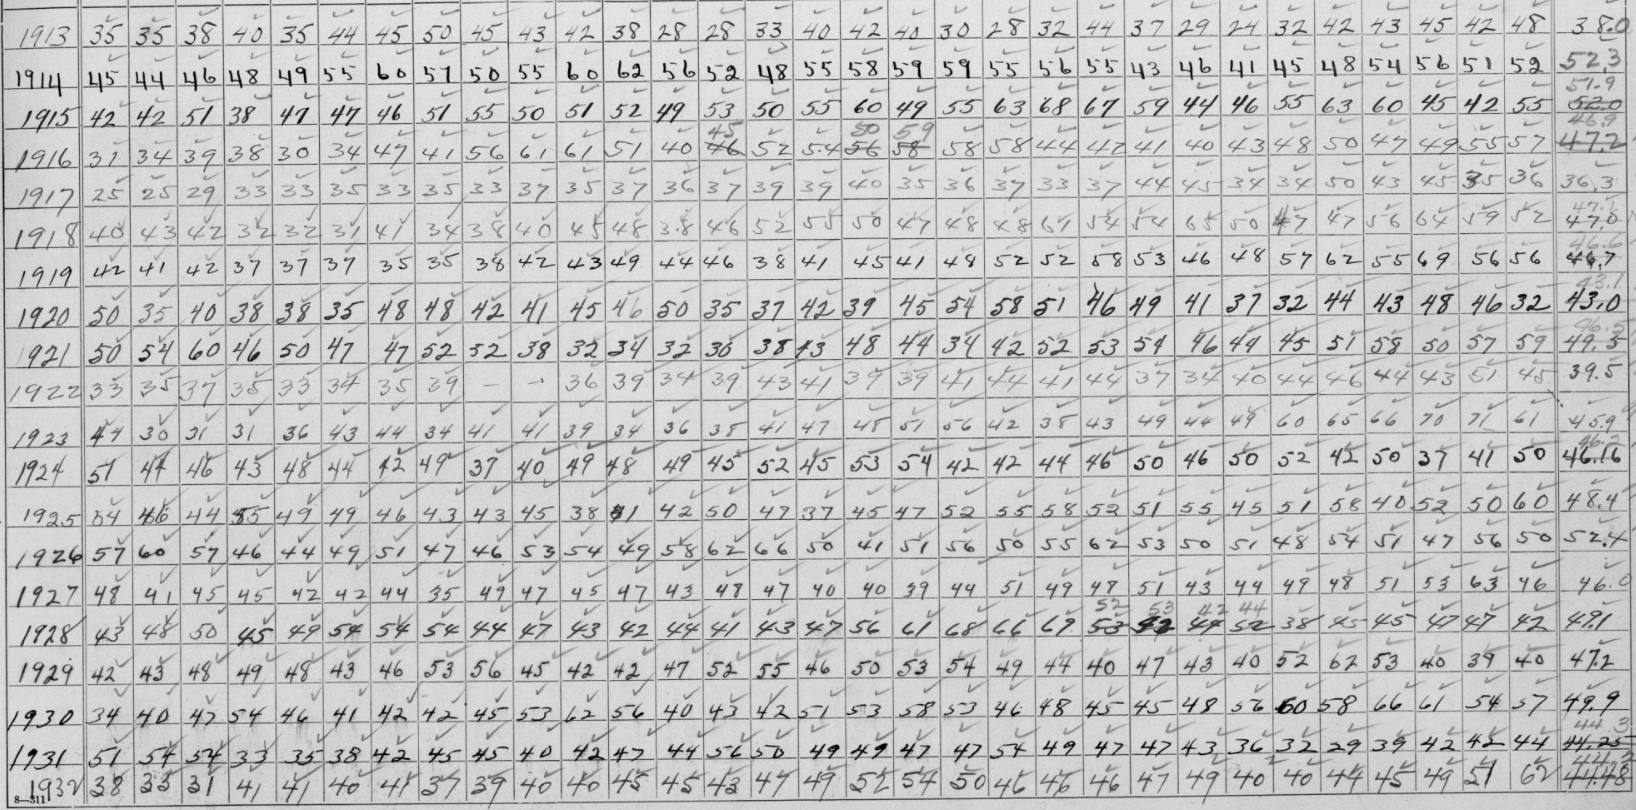 1913 35 35 38 40 35 44 45 50 45 43 42 38 28 28 33 40 42 40 30 28 32 44 37 29 24 32 42 43 45 42 48 38.0
1914 45 44 46 48 49 55 60 57 50 55 60 62 56 52 48 55 58 59 59 55 56 55 43 46 41 45 48 54 56 51 52 52.3
51.9
1915 42 42 51 38 47 47 46 51 55 50 51 52 49 53 50 55 60 49 55 63 68 67 59 44 46 55 63 60 45 42 55 52.0
45 50 59 46.9
1916 31 34 39 38 30 34 47 41 56 61 61 51 40 46 52 54 56 58 58 58 44 42 41 40 43 48 50 47 49 55 57 47.2
1917 25 25 29 33 33 35 33 35 33 37 35 37 36 37 39 39 40 35 36 37 33 37 44 45 34 34 50 43 45 35 36 36.3
1918 40 43 42 32 32 31 41 34 38 40 45 48 38 46 52 55 50 47 48 48 61 54 54 65 50 47 47 56 64 59 52 47.0
46.6
1919 42 41 42 37 37 37 35 35 38 42 43 49 44 46 38 41 45 41 48 52 52 58 53 46 48 57 62 55 69 56 56 46.7
43.1
1920 50 35 40 38 38 35 48 48 42 41 45 46 50 35 37 42 39 45 54 58 51 46 49 41 37 32 44 43 48 46 32 43.0
46.5
1921 50 54 60 46 50 47 47 52 52 38 32 34 32 36 38 43 48 44 34 42 52 53 54 46 44 45 51 58 50 57 59 49.5
1922 33 35 37 35 33 34 35 39 — - 36 39 34 39 43 41 39 39 41 44 41 44 37 34 40 44 46 44 43 51 45 39.5
1923 44 30 31 31 36 43 44 34 41 41 39 34 36 38 41 47 48 51 56 42 38 43 49 44 49 60 65 66 70 71 61 45.9
46.2
1924 51 44 46 43 48 44 42 49 37 40 49 48 49 45 52 45 53 54 42 42 44 46 50 46 50 52 42 50 37 41 50 46.16
1925 54 46 44 55 49 49 46 43 43 45 38 41 42 50 47 37 45 47 52 55 58 52 51 55 45 51 58 40 52 50 60 48.4
1926 57 60 57 46 44 49 51 47 46 53 54 49 58 62 66 50 41 51 56 50 55 62 53 50 51 48 54 51 47 56 50 52.4
1927 48 41 45 45 42 42 44 35 49 47 45 47 43 48 47 40 40 39 44 51 49 48 51 43 44 49 48 51 53 63 46 46.0
52 53 42 44
1928 43 48 50 45 49 54 54 54 44 47 43 42 44 41 43 47 56 61 68 66 69 53 42 44 52 38 45 45 47 47 42 49.1
1929 42 43 48 49 48 43 46 53 56 45 42 42 47 52 55 46 50 53 54 49 44 40 47 43 40 52 62 53 40 39 40 47.2
1930 34 40 47 54 46 41 42 42 45 53 62 56 40 43 42 51 53 58 53 46 48 45 45 48 56 60 58 66 61 54 57 49.9
44.3
1931 51 54 54 33 35 38 42 45 45 40 42 47 44 56 50 49 49 47 47 54 49 47 47 43 36 32 29 39 42 42 44 44.25
1932 38 33 31 41 41 40 41 37 39 40 40 45 45 43 47 49 52 54 50 46 46 46 47 49 40 40 44 45 49 51 62 44.48
8—311